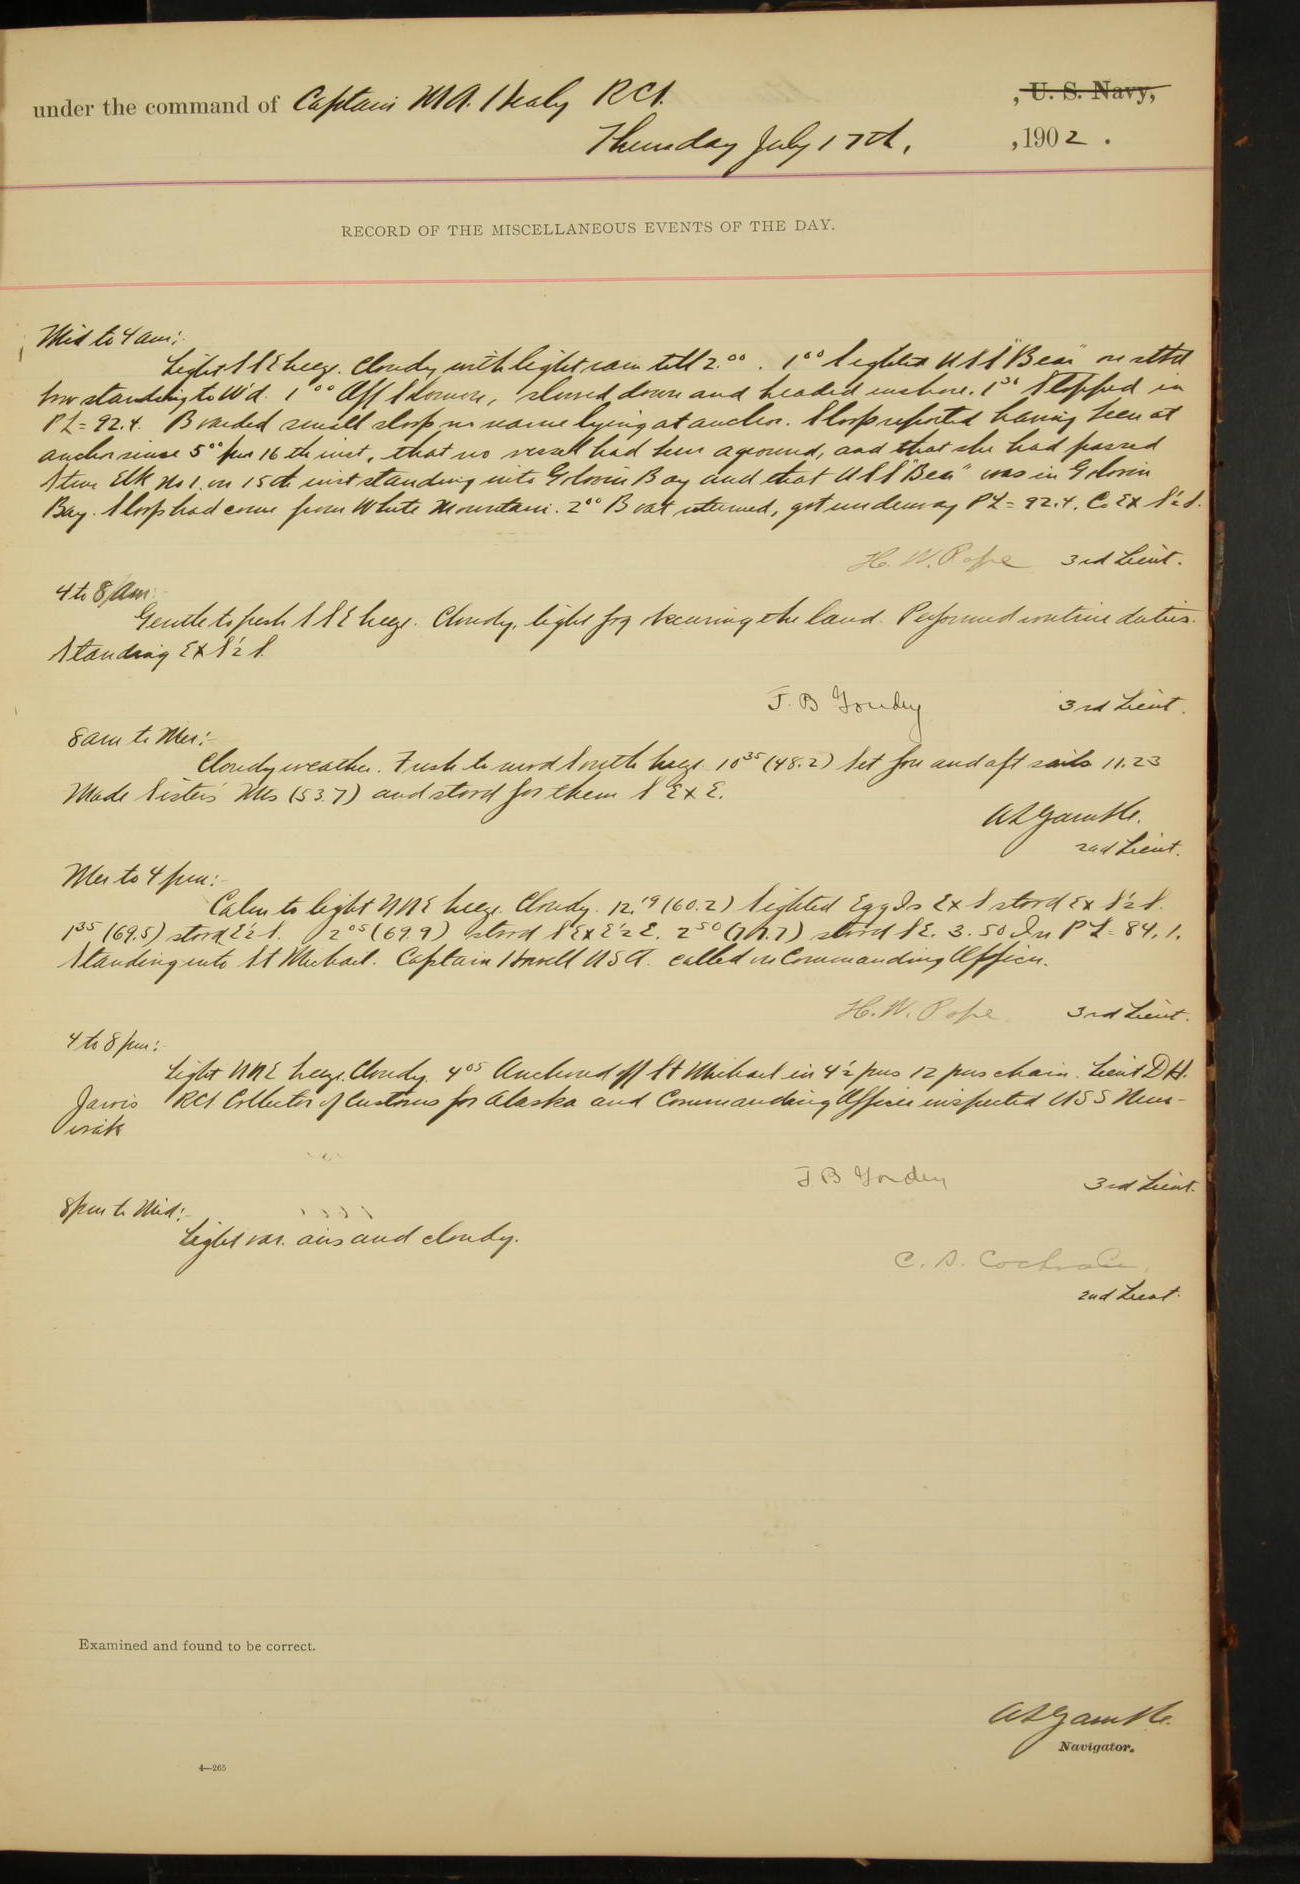 under the command of Captain M A. Healy RCS. , U. S. Navy,
Thursday July 17th, , 1902 .
RECORD OF THE MISCELLANEOUS EVENTS OF THE DAY.
Mid to 4 am:-
Light SSE breeze. Cloudy with light rain till 2.00. 1 00 Sighted USS "Bear" on stbd
bow standing to W'd. 1 00 Off, slowed down and headed inshore. 1 Stopped in
PL = 92.4. Boarded small sloop no name lying at anchor. Sloop reported having been at
anchor since 5 00 pm 16th inst, that no vessel had been aground, and that she had passed
Stmr Elk No 1. on 15th inst standing into Golovin Bay and that USS "Bear" was in Golovin
Bay. Sloop had come from White Mountain. 2 00 Boat returned, got underway PL = 92.4. Co ExS½S.
H. W. Pope 3rd Lieut.
4 to 8 am:-
Gentle to fresh SSE breeze. Cloudy, light fog obscuring the land. Performed routine duties.
Standing ExS½S.
3rd Lieut.
8 am to Mer:-
Cloudy weather. Fresh to mod South breeze. 10 35 (48.2) Set fore and aft sails 11.23
Made Sisters Mts (53.7) and stood for them SExE.
A L Gamble.
2nd Lieut.
Mer to 4 pm:-
Calm to light NNE breeze. Cloudy. 12.19 (60.2) Sighted Egg Is ExS stood ExS½S.
1 35 (69.5) stood E½S. 2 05 (69.9) stood SExE½E. 2 50 stood SE. 3.50 In PL = 84.1.
Standing into St Michael. Captain Howell USA. called on Commanding Officer.
H. W. Pope 3rd Lieut.
4 to 8 pm:-
Light NNE breeze. Cloudy. 4 05 Anchored off St Michael in 4½ fms 12 fms chain. Lieut D H.
Jarvis RCS Collector of Customs for Alaska and Commanding Officer inspected USS Nun-
ivak
3rd Lieut.
8 pm to Mid:-
Light var. airs and cloudy.
C. S. Cochran.
2nd Lieut.
Examined and found to be correct.
A L Gamble.
Navigator.
4—265